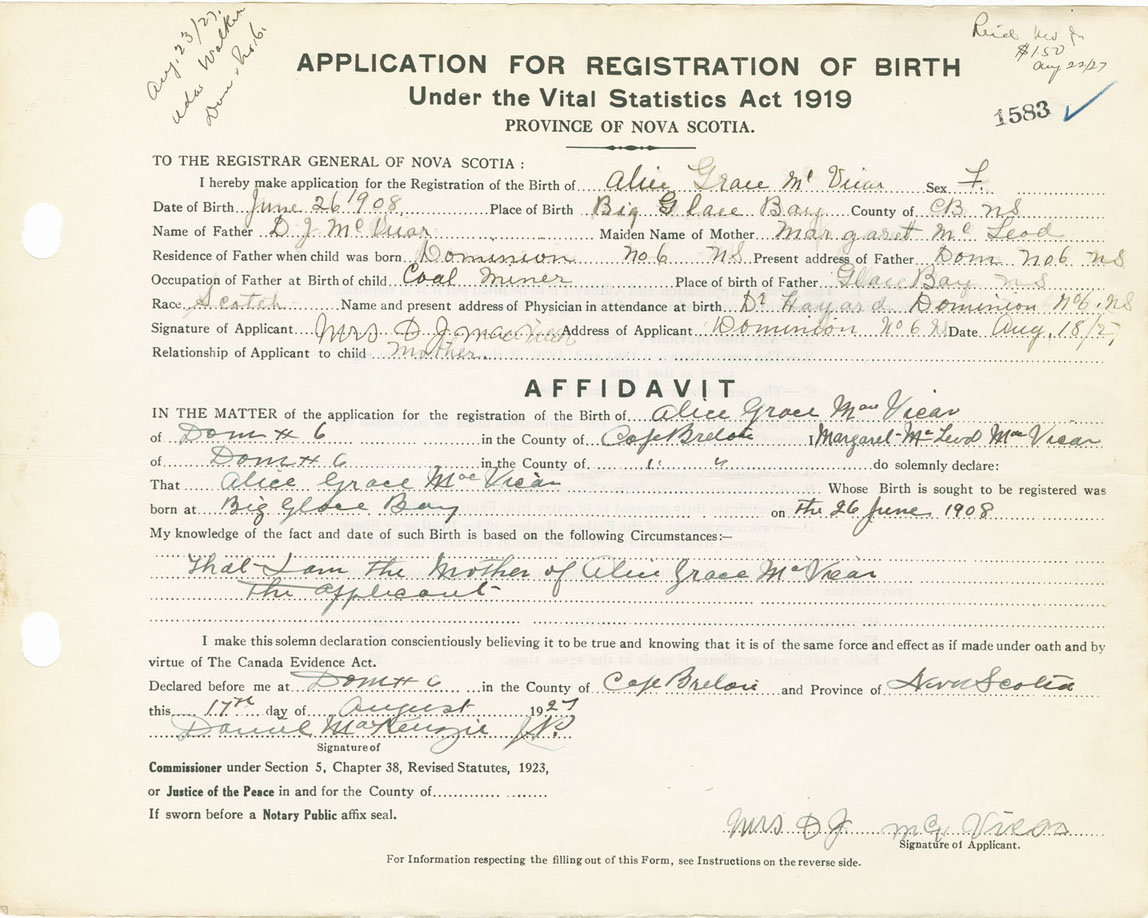 Aug. 23/27.
Walker
Dom. No. 6.
$1.50
Aug 22/27
APPLICATION FOR REGISTRATION OF BIRTH
Under the Vital Statistics Act 1919
1583
PROVINCE OF NOVA SCOTIA.
TO THE REGISTRAR GENERAL OF NOVA SCOTIA :
I hereby make application for the Registration of the Birth of Alice Grace Mc Vicar Sex F
Date of Birth June 26 1908. Place of Birth Big Glace Bay County of CB NS
Name of Father D J McVicar Maiden Name of Mother Margarett Mc Leod
Residence of Father when child was born Dominion No 6 NS Present address of Father Dom No 6 NS
Occupation of Father at Birth of child Coal Miner Place of birth of Father Glace Bay NS
Race Scotch Name and present address of Physician in attendance at birth Dr Hayard Dominion No 6. NS
Signature of Applicant Mrs D J MacVicar Address of Applicant Dominion No 6 NS Date Aug. 18/27
Relationship of Applicant to child Mother.
AFFIDAVIT
IN THE MATTER of the application for the registration of the Birth of Alice Grace Mac Vicar
of Dom # 6 in the County of Cape Breton I Margaret McLeod Mac Vicar
of Dom # 6 in the County of " " do solemnly declare:
That Alice Grace Mac Vicar Whose Birth is sought to be registered was
born at Big Glace Bay on The 26 June 1908
My knowledge of the fact and date of such Birth is based on the following Circumstances:—
That I am the Mother of Alice Grace McVicar
The Applicant
I make this solemn declaration conscientiously believing it to be true and knowing that it is of the same force and effect as if made under oath and by
virtue of The Canada Evidence Act.
Declared before me at Dom # 6 in the County of Cape Breton and Province of Nova Scotia
this 17th day of August 1927
Daniel MacKenzie J.P.
Signature of
Commissioner under Section 5, Chapter 38, Revised Statutes, 1923,
or Justice of the Peace in and for the County of
If sworn before a Notary Public affix seal.
Mrs D J Mc Vicar
Signature of Applicant.
For Information respecting the filling out of this Form, see Instructions on the reverse side.